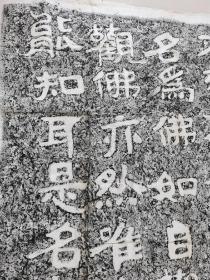 名為佛如自
觀佛亦然唯
能知耳是名